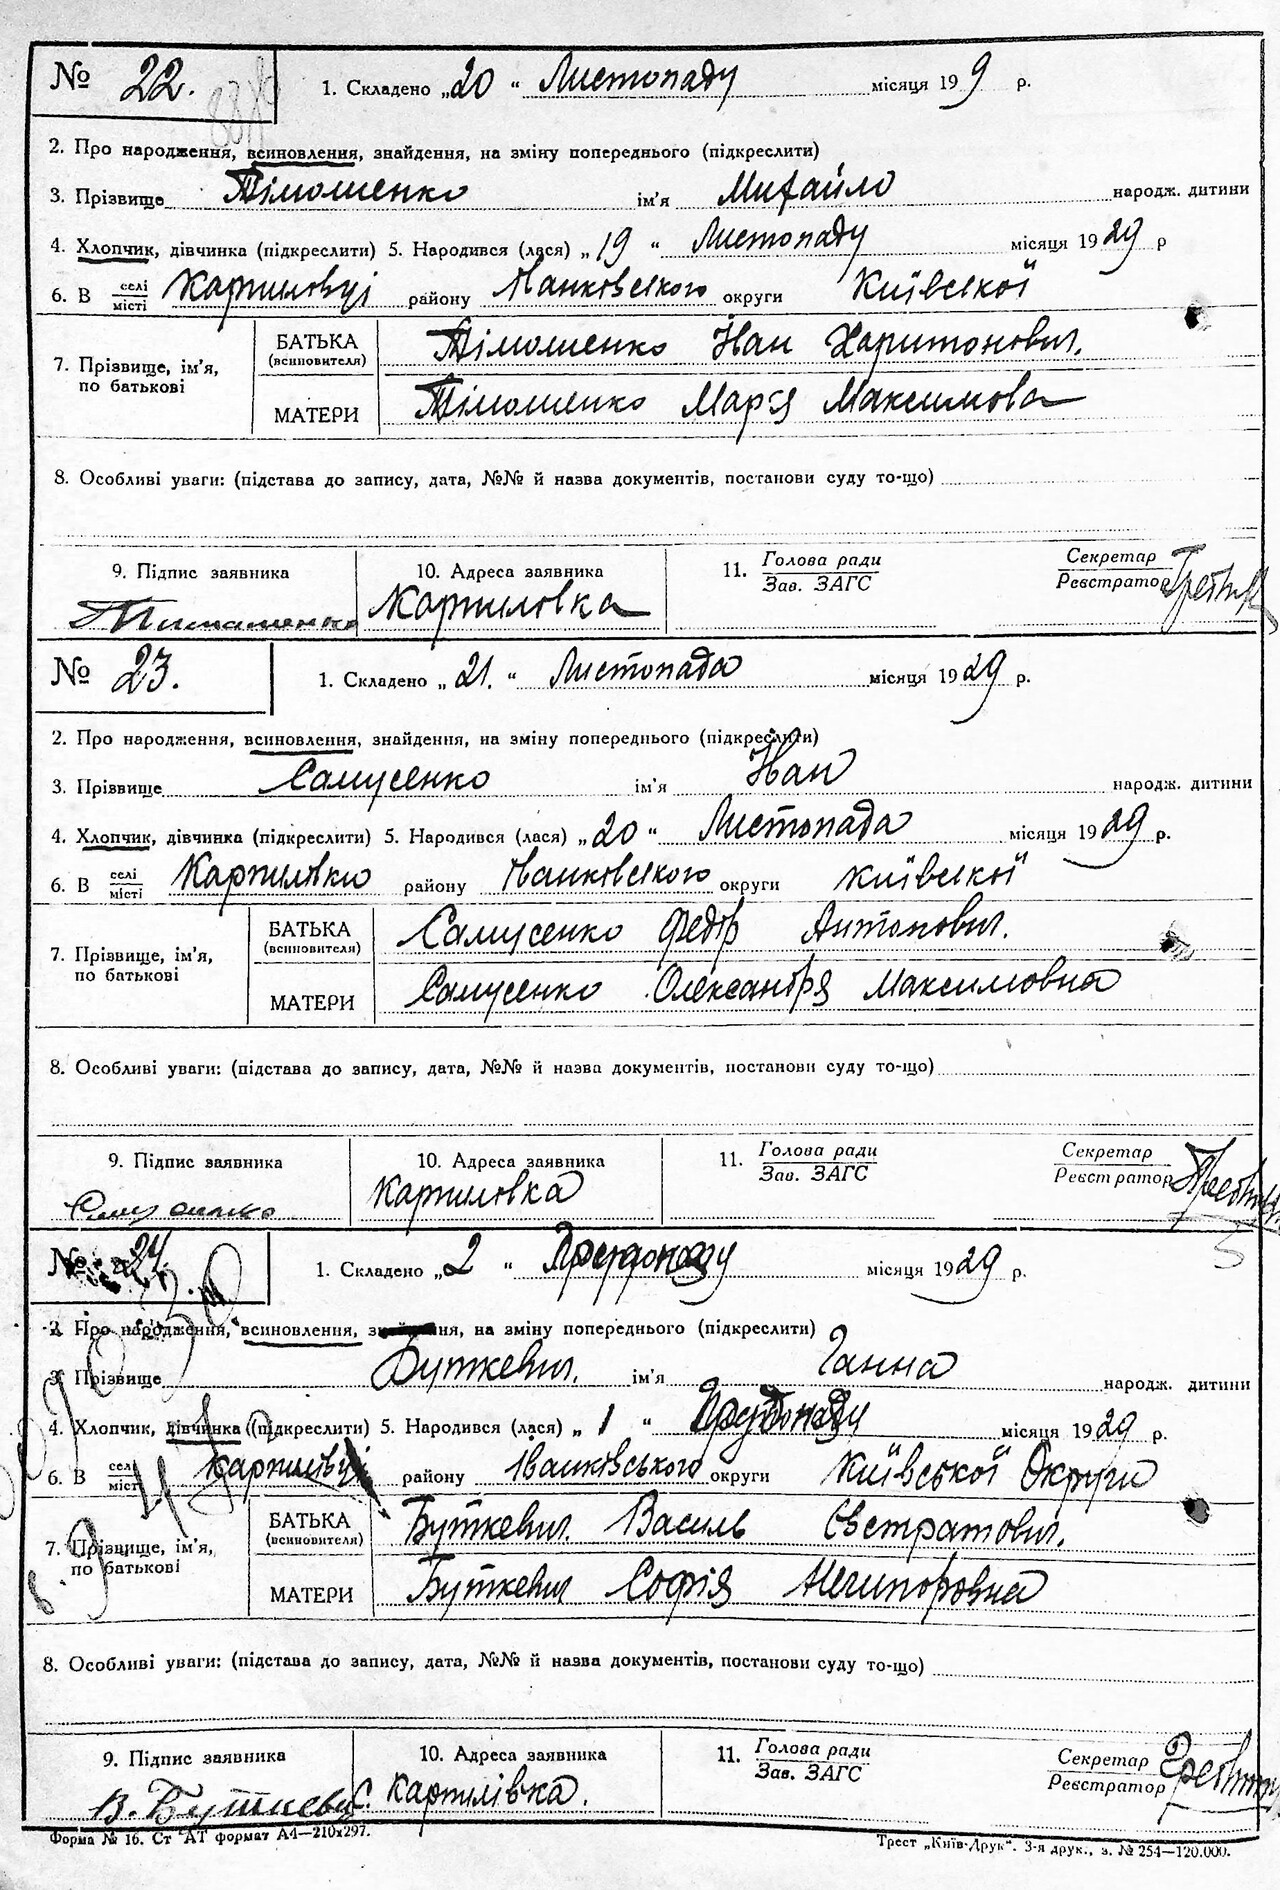 № 22. 1. Складено „20 “ Листопаду місяця 19 9 р.
2. Про народження, всиновлення, знайдення, на зміну попереднього (підкреслити)
3. Прізвище Тімошенко ім'я Михайло народж. дитини
4. Хлопчик, дівчинка (підкреслити) 5. Народився (лася) „ 19 “ Листопаду місяця 1929 р
6. В селі Карпиловці району Іванковського округи Київської
місті
БАТЬКА Тімошенко Іван Харитонович.
(всиновителя)
7. Прізвище, ім'я,
по батькові
МАТЕРИ Тімошенко Мар'я Максимова
8. Особливі уваги: (підстава до запису, дата, №№ й назва документів, постанови суду то-що)
9. Підпис заявника 10. Адреса заявника 11. Голова ради Секретар
Зав. ЗАГС Реєстратор
Тимошенко Карпиловка
№ 23. 1. Складено „ 21. “ Листопада місяця 1929 р.
2. Про народження, всиновлення, знайдення, на зміну попереднього (підкреслити)
3. Прізвище Самусенко ім'я Іван народж. дитини
4. Хлопчик, дівчинка (підкреслити) 5. Народився (лася) „20 “ Листопада місяця 1929 р.
6. В селі Карпилівки району Іванковського округи Київської
місті
БАТЬКА Самусенко Федір Антонович.
(всиновителя)
7. Прізвище, ім'я,
по батькові
МАТЕРИ Самусенко Олександря Максимовна
8. Особливі уваги: (підстава до запису, дата, №№ й назва документів, постанови суду то-що)
9. Підпис заявника 10. Адреса заявника 11. Голова ради Секретар
Зав. ЗАГС Реєстратор
Самусенко Карпиловка
№ 24. 1. Складено „2 “ місяця 1929 р.
2. Про народження, всиновлення, знайдення, на зміну попереднього (підкреслити)
3. Прізвище Буткевич. ім'я Ганна народж. дитини
4. Хлопчик, дівчинка (підкреслити) 5. Народився (лася) „ 1 “ місяця 1929 р.
6. В селі Карпилівці району Іванківського округи Київської Округи
місті
БАТЬКА Буткевич. Василь Євстратович.
(всиновителя)
7. Прізвище, ім'я,
по батькові
МАТЕРИ Буткевич Софія Нечипоровна
8. Особливі уваги: (підстава до запису, дата, №№ й назва документів, постанови суду то-що)
9. Підпис заявника 10. Адреса заявника 11. Голова ради Секретар
Зав. ЗАГС Реєстратор
В. Буткевич С. Карпилівка.
Форма № 16. Ст АТ формат А4—210х297. Трест „Київ-Друк“. 3-я друк., з. № 254—120.000.